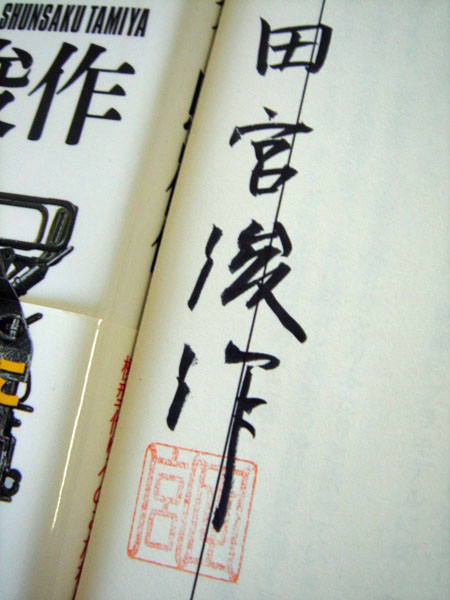 SHUNSAKU TAMIYA
俊作
田宮俊作
田宮